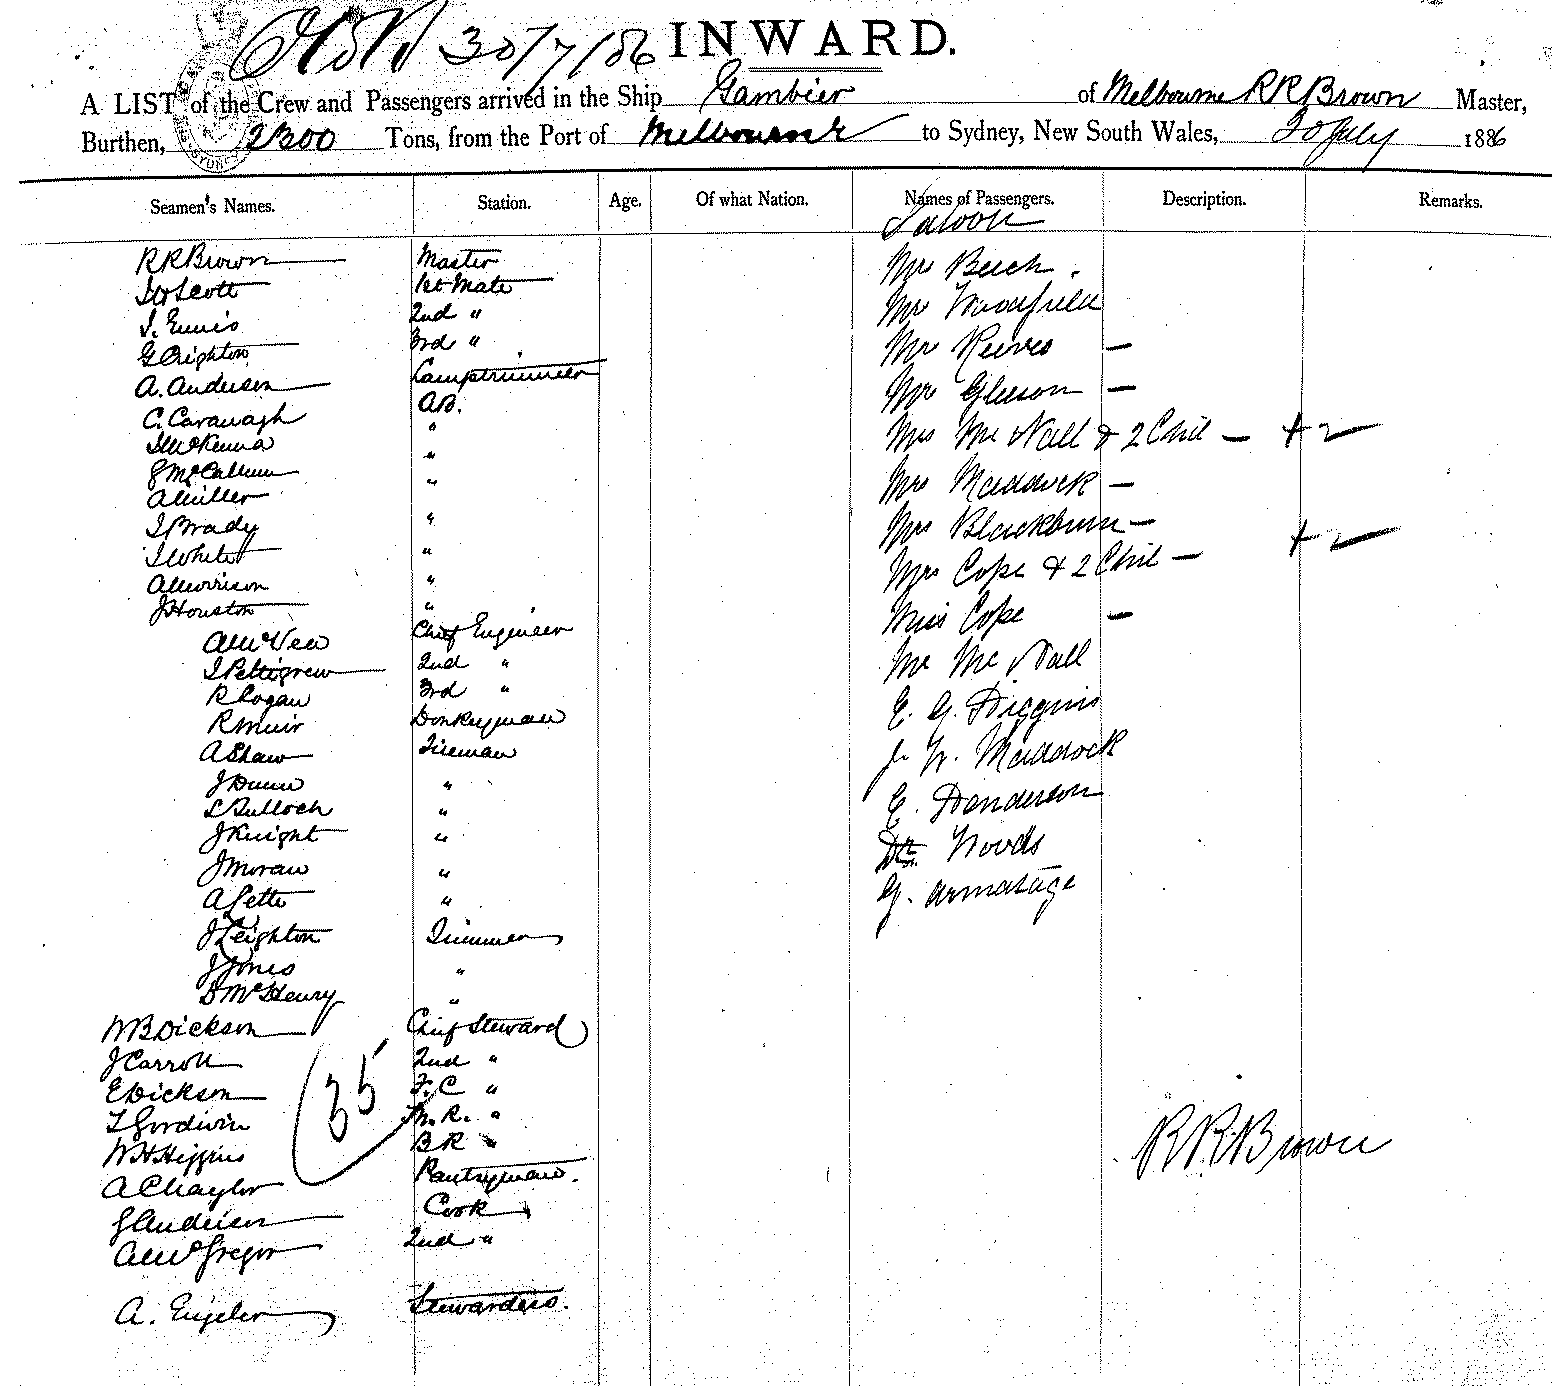 30/7/86 INWARD.
A LIST of the Crew and Passengers arrived in the Ship Gambier of Melbourne R R Brown Master,
Burthen, 2300 Tons, from the Port of Melbourne to Sydney, New South Wales, 30 July 1886
Seamen's Names. Station. Age. Of what Nation. Names of Passengers. Description. Remarks.
Saloon
R R Brown Master Mr Beech
Scott 1st Mate Mr Woodfield
J. Ennis 2nd "
G Crighton 3rd " Mr Reeves —
A. Anderson Lamptrimmer Mr Gleeson —
C. Cavanagh A.B.
McKenna " Mrs Mc Nall & 2 Chil — + 2
McCallum "
A Miller " Mrs Maddock —
J Brady " Mrs Blackburn —
J White " Mrs Cope & 2 Chil — +
A Morrison "
J Houston " Miss Cope —
A McVea Chief Engineer
J Pettigrew 2nd " Mr Mc Nall
R Logan 3rd " E. G. Higgins
R Muir Donkeyman
A Shaw Fireman J. W. Maddock
J Dunn "
Bulloch " E. Henderson
J Knight " Woods
J Moran "
A Lette " G. Armatage
J Leighton Trimmer
J Jones "
D McHenry "
W B Dickson Chief Steward
J Carroll 2nd "
E Dickson F.C "
35
T Goodwin M.R. "
W H Higgins B R "
R R Brown
A Chaylor Pantryman.
Anderson Cook
A McGregor 2nd "
A. Engeler Stewardess.
SYDNEY